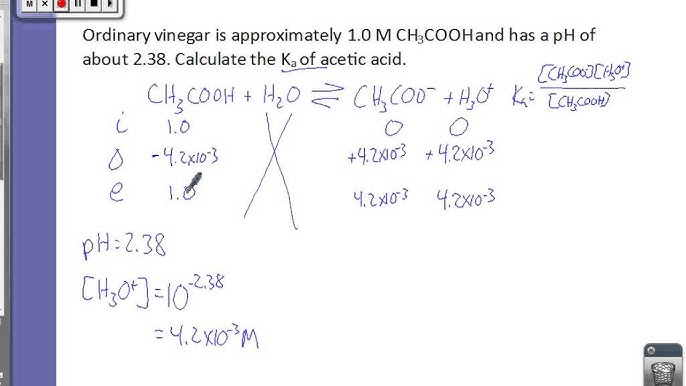 Ordinary vinegar is approximately 1.0 M CH₃COOH and has a pH of
about 2.38. Calculate the Kₐ of acetic acid.
CH₃COOH + H₂O ⇌ CH₃COO⁻ + H₃O⁺ Kₐ = [CH₃COO⁻][H₃O⁺]
[CH₃COOH]
i 1.0 0 0
Δ -4.2x10⁻³ +4.2x10⁻³ +4.2x10⁻³
e 1.0 4.2x10⁻³ 4.2x10⁻³
pH = 2.38
[H₃O⁺] = 10⁻²·³⁸
= 4.2x10⁻³ M